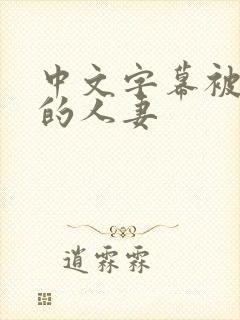 中文字幕被
的人妻
逍霖霖